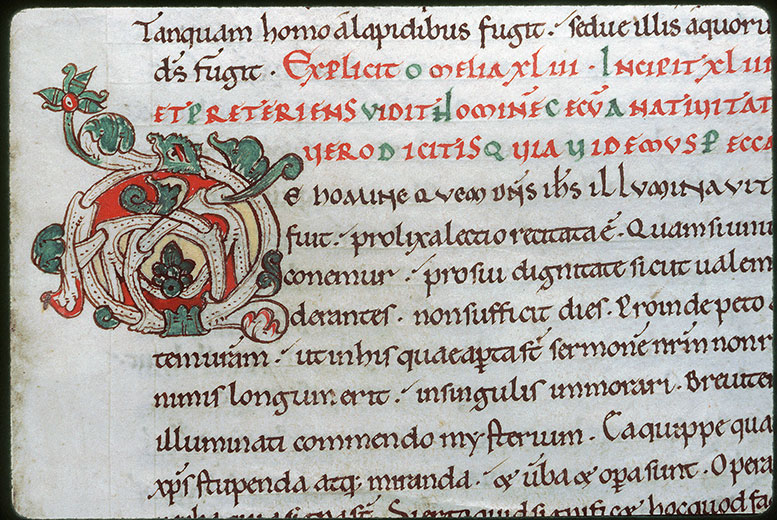 Tanquam homo a lapidibus fugit. sed ue illis a quoru
ds̄ fugit. Explicit omelia xliii. Incipit xliiii
et preteriens vidit hominē cecū a nativitat
vero dicitis quia videmus pecca
De homine quem dn̄s ih̄s illuminavit
fuit. prolixa lectio recitata ē. Quam si uni
conemur. pro sui dignitate sicut ualem
derantes. non sufficit dies. Proinde peto
temuram. ut in his quae aperta st̄ sermonē nr̄m non r
nimis longum erit. in singulis immorari. Breuiter
illuminati commendo mysterium. Ea quippe qua
xp̄s stupenda atq; miranda. & uerba & opera sunt. Opera
facta st̄. Uerba quia signa st̄. Si ergo quid significe& hoc quod fac